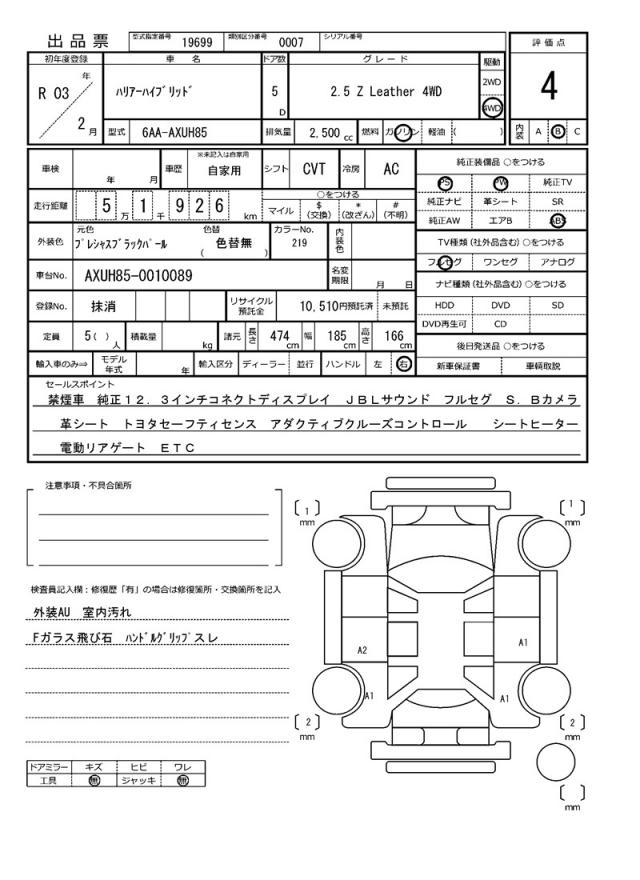 出品票 型式指定番号 19699 類別区分番号 0007 シリアル番号
評価点
4
内装 A B C
初年度登録 車名 ドア数 グレード 駆動
R 03 年 2 月
ﾊﾘｱｰﾊｲﾌﾞﾘｯﾄﾞ 5 D 2.5 Z Leather 4WD 2WD 4WD
型式 6AA-AXUH85 排気量 2,500 cc 燃料 ガソリン 軽油 ( )
車検 年 月 車歴 ※未記入は自家用 自家用 シフト CVT 冷房 AC
走行距離 5 万 1 千 9 2 6 km
○をつける
マイル $ (交換) * (改ざん) # (不明)
外装色 元色 ﾌﾟﾚｼｬｽﾌﾞﾗｯｸﾊﾟｰﾙ 色替 ( 色替無 ) カラーNo. 219 内装色
車台No. AXUH85-0010089 名変期限 月 日
登録No. 抹消 リサイクル預託金 10,510円預託済 未預託
定員 5( ) 人 積載量 kg 諸元 長さ 474 cm 幅 185 cm 高さ 166 cm
輸入車のみ⇒ モデル年式 年 輸入区分 ディーラー 並行 ハンドル 左 右
純正装備品 ○をつける
PS PW 純正TV
純正ナビ 革シート SR
純正AW エアB ABS
TV種類(社外品含む) ○をつける
フルセグ ワンセグ アナログ
ナビ種類(社外品含む) ○をつける
HDD DVD SD
DVD再生可 CD
後日発送品 ○をつける
新車保証書 車輌取説
セールスポイント
禁煙車 純正12.3インチコネクトディスプレイ JBLサウンド フルセグ S.Bカメラ
革シート トヨタセーフティセンス アダクティブクルーズコントロール シートヒーター
電動リアゲート ETC
注意事項・不具合箇所
検査員記入欄:修復歴「有」の場合は修復箇所・交換箇所を記入
外装AU 室内汚れ
Fガラス飛び石 ﾊﾝﾄﾞﾙｸﾞﾘｯﾌﾟスレ
ドアミラー キズ ヒビ ワレ
工具 無 ジャッキ 無
[ 1 ] mm
[ 1 ] mm
A2
A1
A1
A1
[ 2 ] mm
[ 2 ] mm
[ ] mm